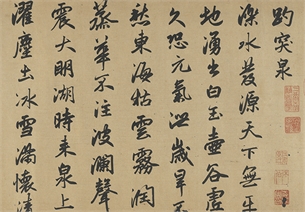 趵突泉
濼水發源天下無平
地湧出白玉壺谷虛
久恐元氣洩歲旱不
愁東海枯雲霧潤
蒸華不注波瀾聲
震大明湖時来泉上
濯塵土冰雪滿懷清